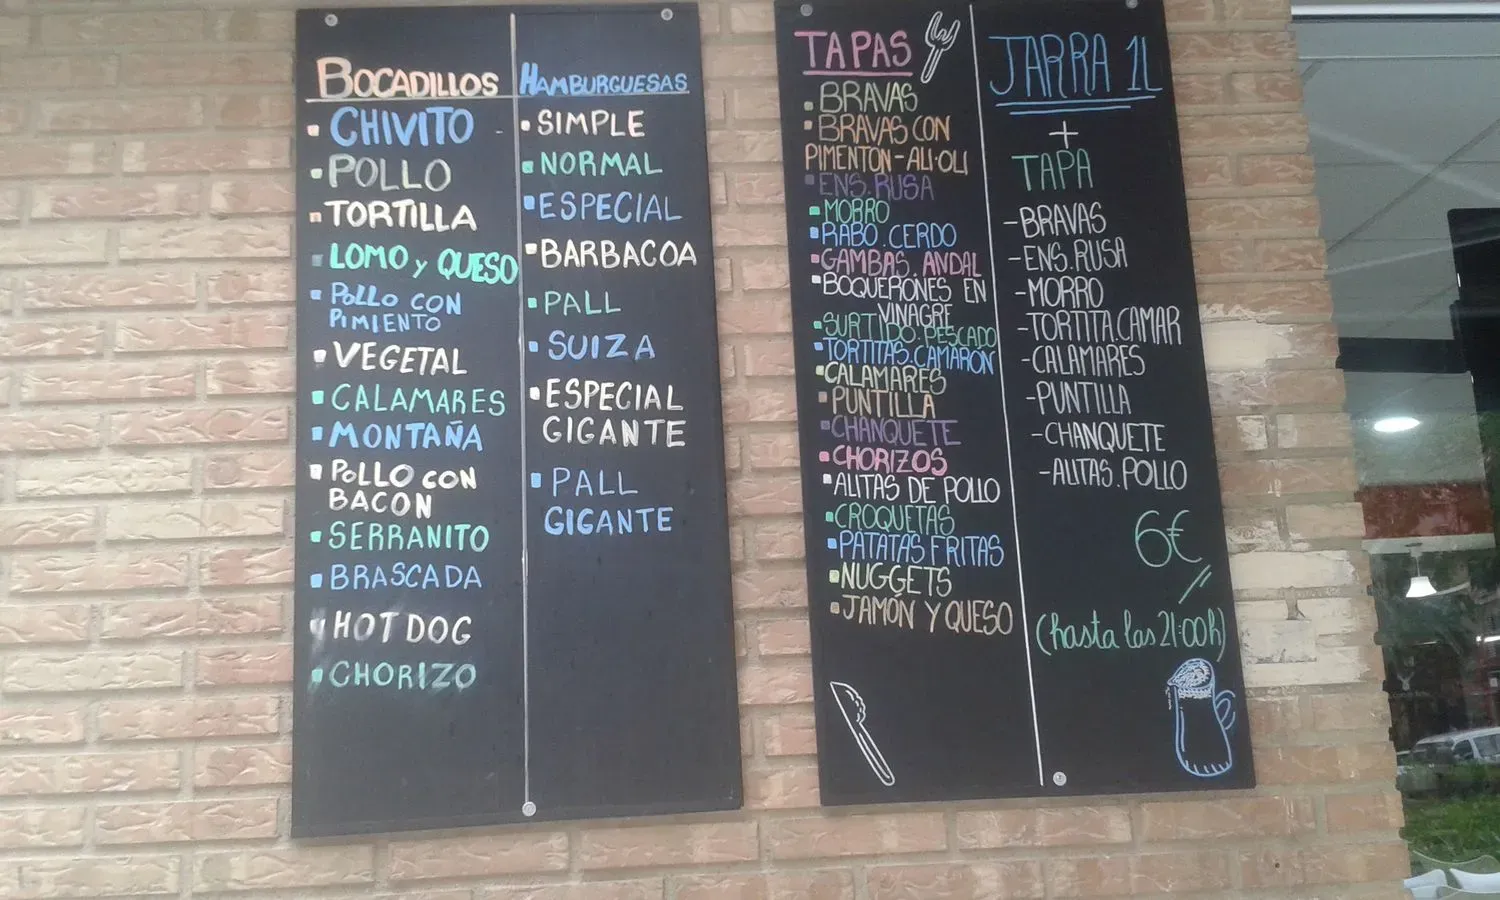 BOCADILLOS
CHIVITO
POLLO
TORTILLA
LOMO y QUESO
POLLO CON
PIMIENTO
VEGETAL
CALAMARES
MONTAÑA
POLLO CON
BACON
SERRANITO
BRASCADA
HOT DOG
CHORIZO
HAMBURGUESAS
SIMPLE
NORMAL
ESPECIAL
BARBACOA
PALL
SUIZA
ESPECIAL
GIGANTE
PALL
GIGANTE
TAPAS
BRAVAS
BRAVAS CON
PIMENTON-ALI·OLI
ENS. RUSA
MORRO
RABO. CERDO
GAMBAS. ANDAL
BOQUERONES EN
VINAGRE
SURTIDO. PESCADO
TORTITAS. CAMARON
CALAMARES
PUNTILLA
CHANQUETE
CHORIZOS
ALITAS DE POLLO
CROQUETAS
PATATAS FRITAS
NUGGETS
JAMÓN Y QUESO
JARRA 1L
+
TAPA
-BRAVAS
-ENS. RUSA
-MORRO
-TORTITA. CAMAR
-CALAMARES
-PUNTILLA
-CHANQUETE
-ALITAS. POLLO
6€
(hasta las 21:00h)